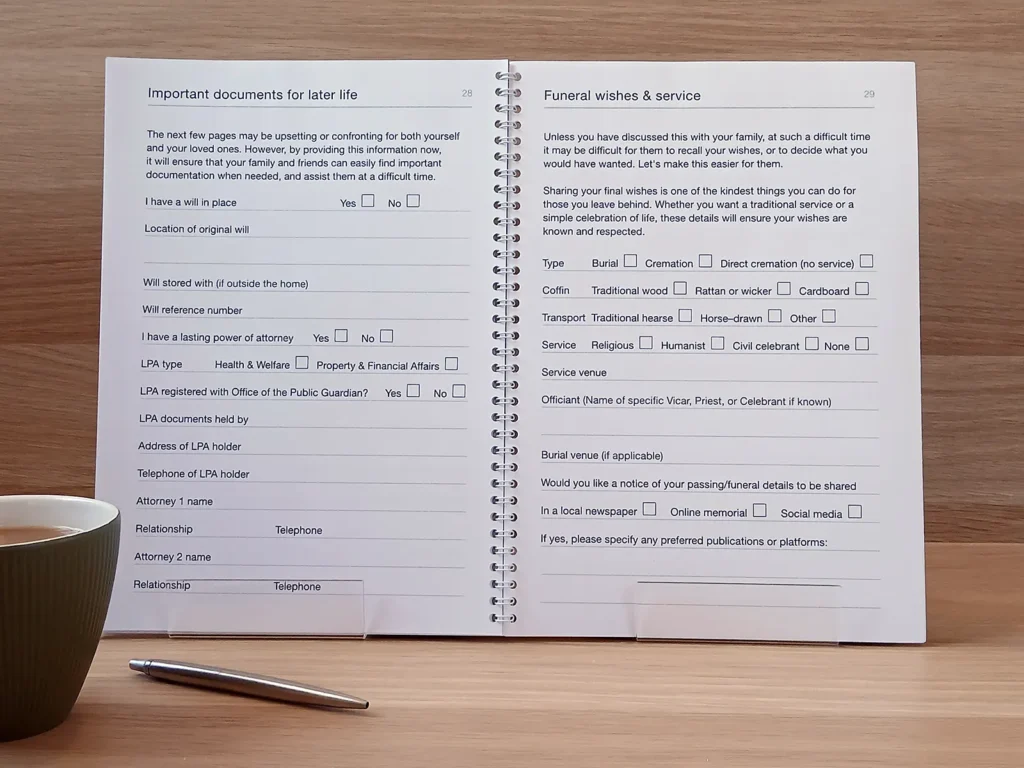 Important documents for later life 28
The next few pages may be upsetting or confronting for both yourself
and your loved ones. However, by providing this information now,
it will ensure that your family and friends can easily find important
documentation when needed, and assist them at a difficult time.
I have a will in place Yes No
Location of original will
Will stored with (if outside the home)
Will reference number
I have a lasting power of attorney Yes No
LPA type Health & Welfare Property & Financial Affairs
LPA registered with Office of the Public Guardian? Yes No
LPA documents held by
Address of LPA holder
Telephone of LPA holder
Attorney 1 name
Relationship Telephone
Attorney 2 name
Relationship Telephone
Funeral wishes & service 29
Unless you have discussed this with your family, at such a difficult time
it may be difficult for them to recall your wishes, or to decide what you
would have wanted. Let's make this easier for them.
Sharing your final wishes is one of the kindest things you can do for
those you leave behind. Whether you want a traditional service or a
simple celebration of life, these details will ensure your wishes are
known and respected.
Type Burial Cremation Direct cremation (no service)
Coffin Traditional wood Rattan or wicker Cardboard
Transport Traditional hearse Horse–drawn Other
Service Religious Humanist Civil celebrant None
Service venue
Officiant (Name of specific Vicar, Priest, or Celebrant if known)
Burial venue (if applicable)
Would you like a notice of your passing/funeral details to be shared
In a local newspaper Online memorial Social media
If yes, please specify any preferred publications or platforms: